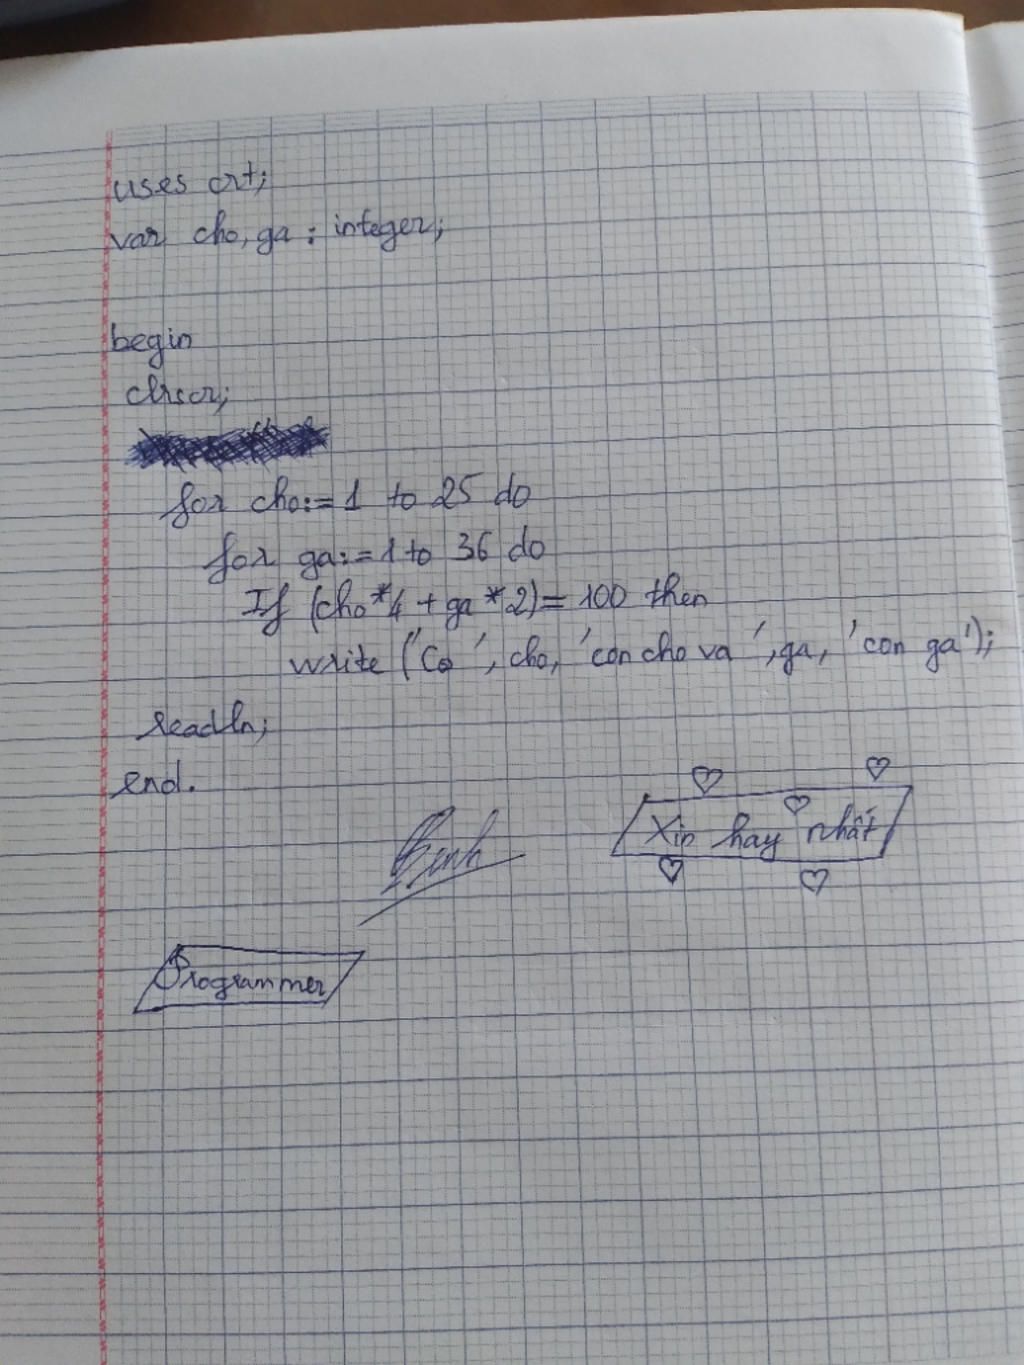 uses crt;
var cho, ga : integer;
begin
clrscr;
for cho:=1 to 25 do
for ga:=1 to 36 do
If (cho*4 + ga*2)=100 then
write ('Co ', cho, 'con cho va ', ga, 'con ga');
readln;
end.
Xin hay nhất
Programmer